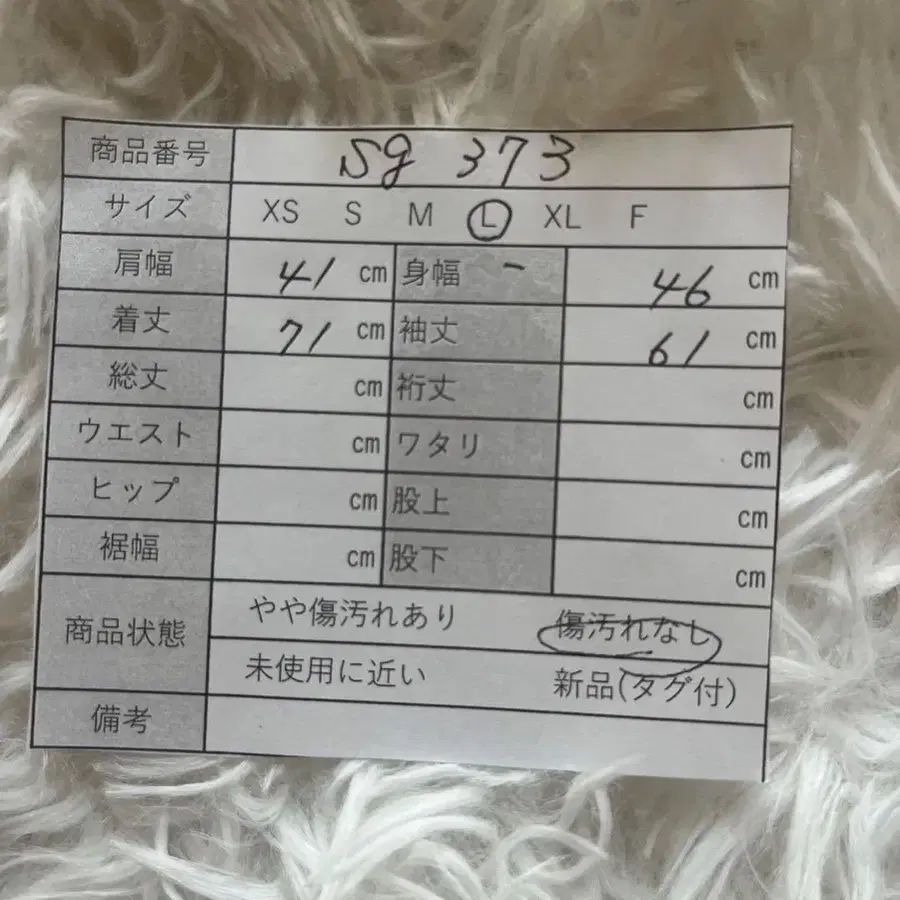 商品番号 sg 373
サイズ XS S M L XL F
肩幅 41 cm 身幅 - 46 cm
着丈 71 cm 袖丈 61 cm
総丈 cm 裄丈 cm
ウエスト cm ワタリ cm
ヒップ cm 股上 cm
裾幅 cm 股下 cm
商品状態 やや傷汚れあり 傷汚れなし
未使用に近い 新品(タグ付)
備考